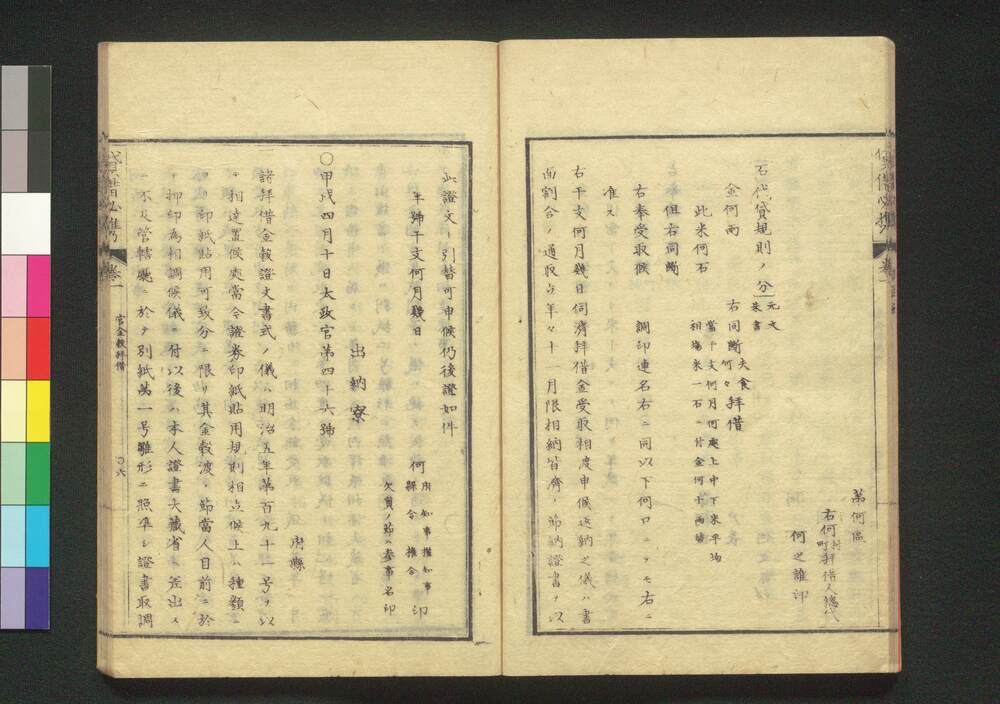 第何區
右何村町拝借人惣代
何之誰印
石代貸規則ノ分
元文
朱書
金何両
右同断
夫食拝借
何々
此米何石
當干支何月何處上中下米平均
相場米一石ニ付金何十両替
但右同断
右奉受取候
調印連名右ニ同以下何口ニヨツモ右ニ
准ス
右干支何月幾日伺済拝借金受取相渡申候返納之儀ハ書
面割合ノ通取立年々十一月限相納皆濟ノ節納證書ヲ以
此證文ニ引替可申候仍後證如件
年號干支何月幾日
何
府知事権知事
縣令権令
印
欠員ノ節ハ参事名印
出納寮
〇甲戌四月十日太政官第四十六號
府縣
諸拝借金穀證文書式ノ儀ハ明治五年第百九十一号ヲ以
テ相達置候處當今證券印紙貼用規則相立候上ハ種類
印紙貼用可致分ニ限リ其金穀渡ノ節當人目前ニ於
テ押印為相調候儀ニ付以後ハ本人證書大藏省ニ差出ス
ニ不及管轄廳ニ於テ別紙第一号雛形ニ照準シ證書取調
貸借必携
巻一
官金穀拝借
〇六